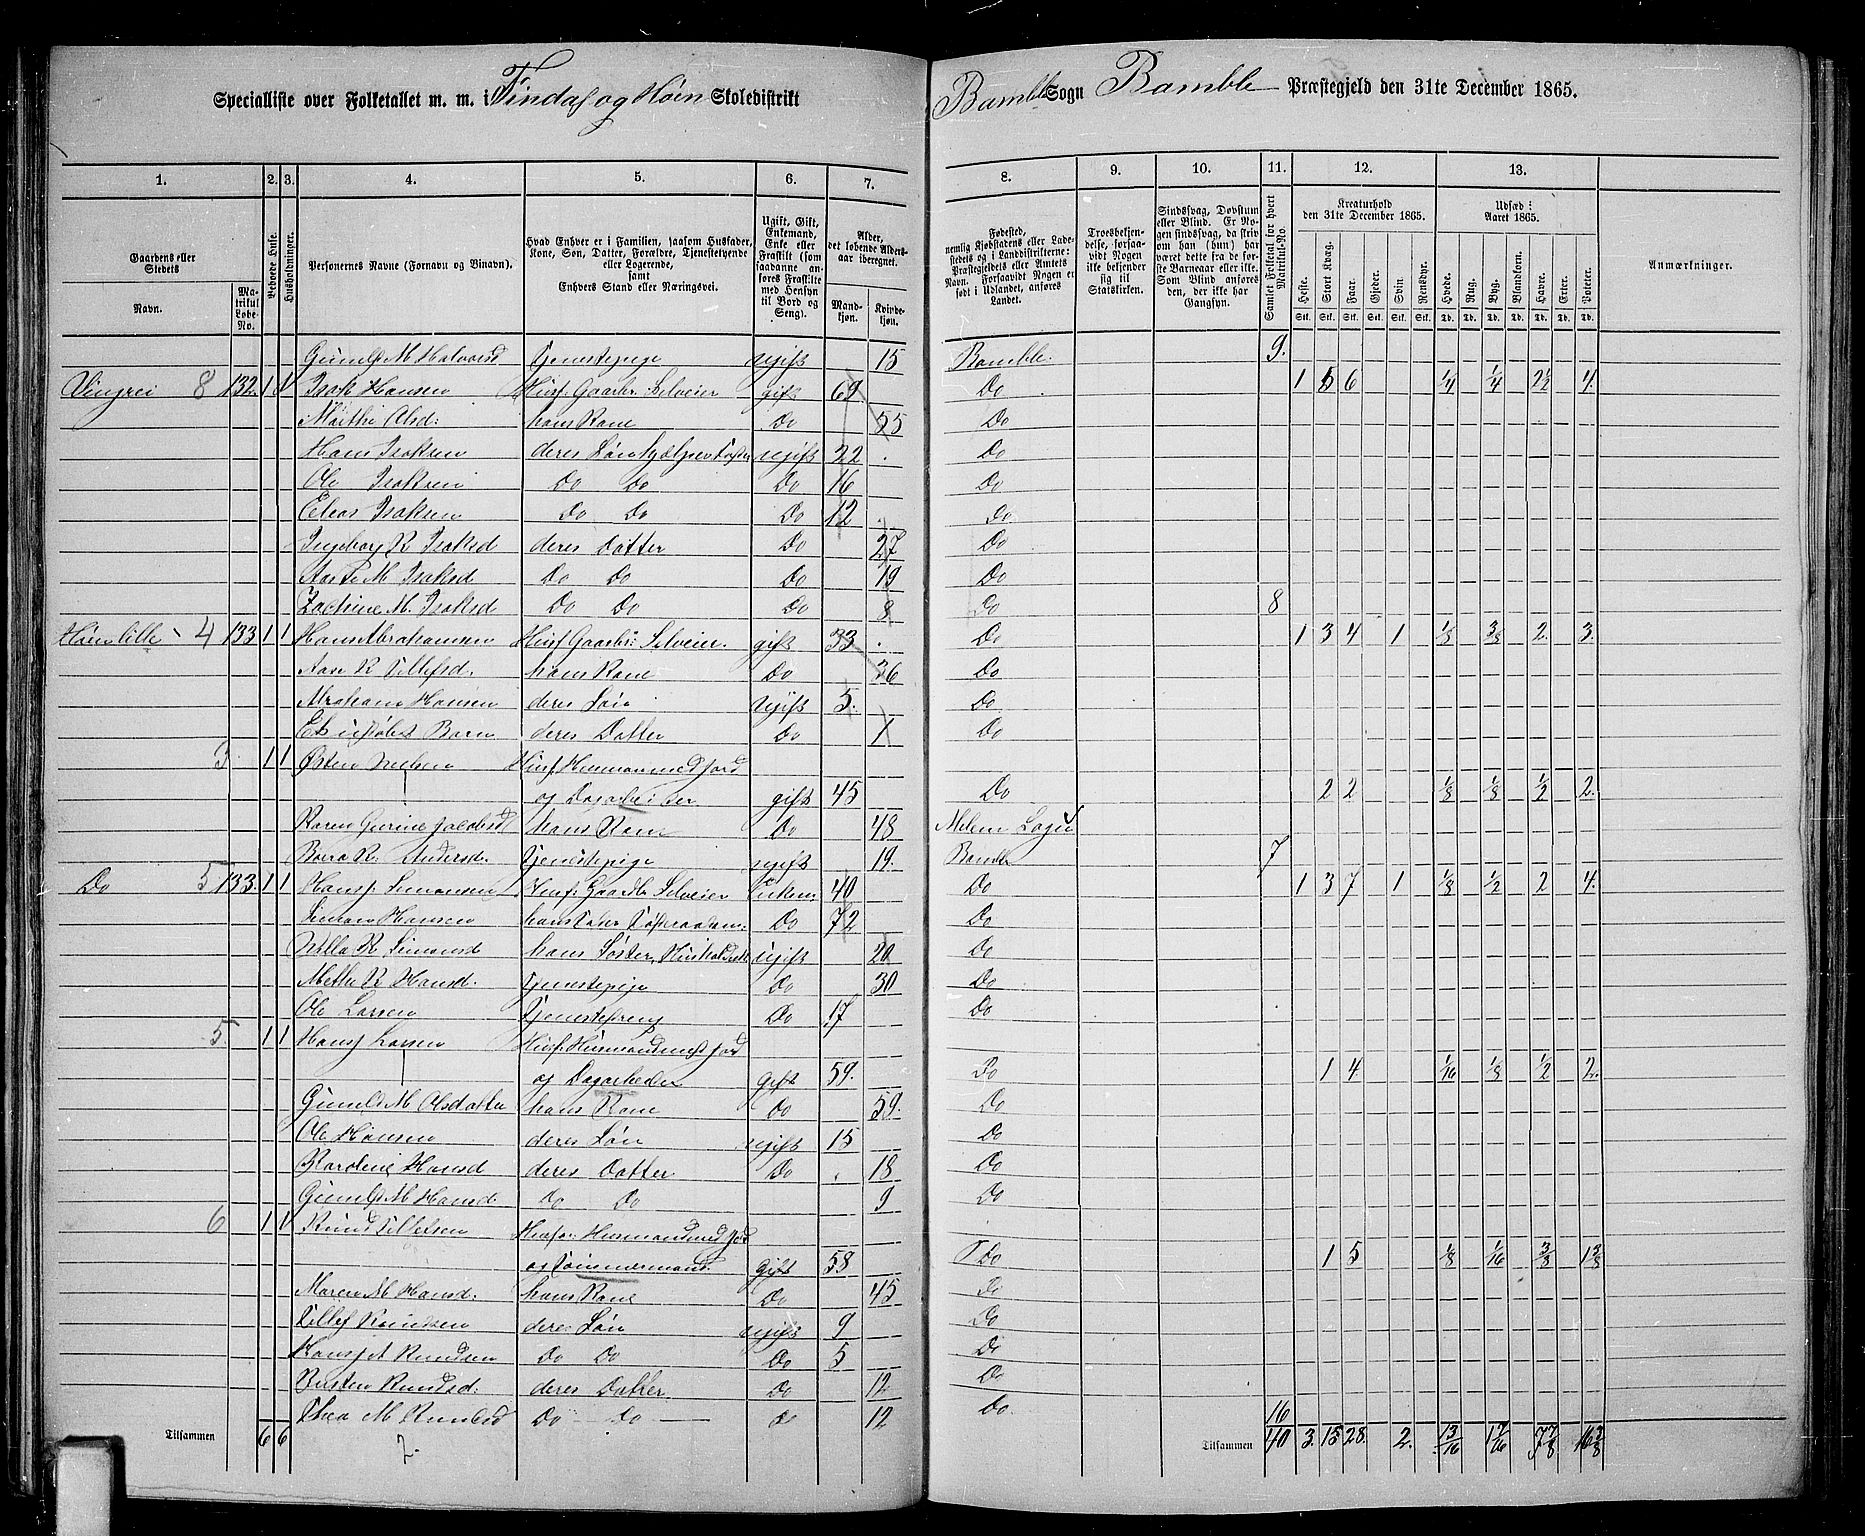 Specialliste over Folketallet m. m. i Findal og Høen Skoledistrikt
Bamble Sogn Bamble Præstegjeld den 31te December 1865.
1. 2. 3. 4. 5. 6. 7. 8. 9. 10. 11. 12. 13.
Gaardens eller Stedets
Navn.
Matrikul Løbe-No.
Beboede Huse.
Husholdninger.
Personernes Navne (Fornavn og Binavn).
Hvad Enhver er i Familien, saasom Husfader, Kone, Søn, Datter, Forældre, Tjenestetyende eller Logerende, samt Enhvers Stand eller Næringsvei.
Ugift, Gift, Enkemand, Enke eller Fraskilt (som saadanne anføres Fraskilte med Hensyn til Bord og Seng).
Alder, det løbende Aldersaar iberegnet.
Mandkjøn.
Kvindekjøn.
Fødested, nemlig Kjøbstadens eller Ladestedets og i Landdistrikterne: Præstegjeldets eller Amtets Navn. Forsaavidt Nogen er født i Udlandet, anføres Landet.
Troesbekjendelse, forsaavidt Nogen ikke bekjender sig til Statskirken.
Sindssvag, Døvstum eller Blind. Er Nogen sindssvag, da skriv om han (hun) har været dette fra de første Barneaar eller ikke. Som Blind anføres den, der ikke har Gangsyn.
Samlet Folketal for hvert Matrikul-No.
Kreaturhold den 31te December 1865.
Heste. Stort Kvæg. Faar. Gjeder. Svin. Rensdyr.
Udsæd i Aaret 1865.
Hvede. Rug. Byg. Blandkorn. Havre. Erter. Poteter.
Anmærkninger.
Gunild M Halvorsd Tjenestepige Ugift 15 Bamble. 9.
8 132. 1 1 Isak Hansen Husf. Gaardbr. Selveier gift 69. Do 1 5 6 1/4 1/4 2 1/2 4.
Olsd: hans Kone Do 55 Do
Hans Isaksen deres Søn ugift 22 Do
Ole Isaksen Do Do Do 16 Do
Elias Isaksen Do Do Do 12 Do
Ingborg K Isaksd deres Datter Do 27 Do
M Isaksd Do Do Do 19 Do
M. Isaksd Do Do Do 8 Do 8
Høen lille 4 133 1 1 Hans Abrahamsen Husf Gaardbr: Selveier. gift 33 Do 1 3 4 1 1/8 3/8 2. 3.
K Tellefsd. hans Kone Do 36 Do
Abraham Hansen deres Søn Ugift 5. Do
Barn deres Datter Do 1 Do
3. 1 1 Østen Nielsen Husf Husmand med Jord
og Dagarbeider gift 45 Do 2 2 1/8 1/8 1/2 2.
Karen Gurine Jacobsd hans Kone Do 48
K. Andersd. Tjenestepige ugift 19. Bamble 7
Do 5 133. 1 1 Hans Simonsen Husf: Gaardbr Selveier Enkem: 40 Do 1 3 7 1 1/8 1/2 2 4.
Simon Hansen hans Fader Do 72 Do
K Simonsd hans Søster, Ugift 20 Do
Mette K Hansd. Tjenestepige Do 30 Do
Ole Larsen Tjenestedreng Do 17 Do
5. 1 1 Hans Larsen Husf: Husmand med Jord
og Dagarbeder gift 59. Do 1 4 1/16 1/8 1/2 2.
Gunild M Olsdatter hans Kone Do 59. Do
Ole Hansen deres Søn ugift 15 Do
Karoline Hansd deres Datter Do 18 Do
Gunild M Hansd Do Do 9 Do
6 1 1 Knud Tellefsen Husfa: Husmand med Jord
og Tømmermand Gift 58 Do 1 5 1/8 1/16 3/8 1 3/8
Maren M Hansd. hans Kone Do 45 Do
Tellef Knudsen deres Søn ugift 9 Do
Hans A Knudsen Do Do Do 5 Do
Kirsten Knudsd: deres Datter Do 12 Do
Thea M Knudsd Do Do 12 Do. 16
Tilsammen 6 6 Tilsammen 40 3. 15 28. 2. 13/16 1 7/16 7 7/8 16 3/8
7.